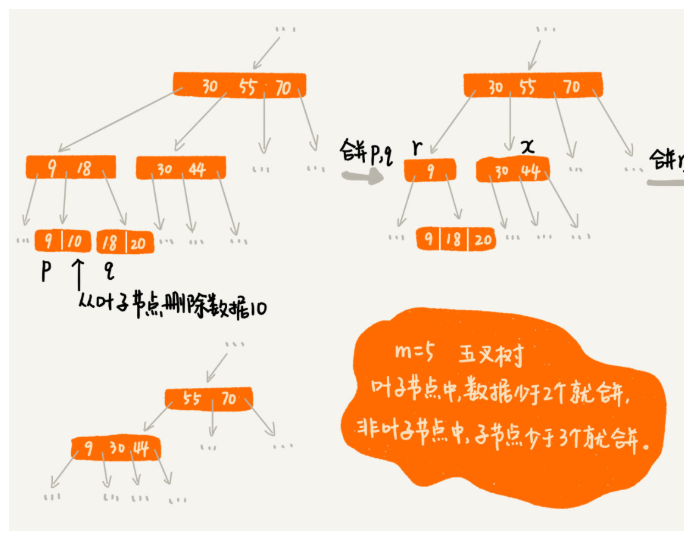 ...
30 55 70
9 18
30 44
...
...
...
9 10
18 20
...
...
...
p
q
从叶子节点删除数据10
合并p,q
...
30 55 70
r
x
9
30 44
...
...
...
9 18 20
...
...
...
合并r
...
55 70
9 30 44
...
...
...
...
...
...
m=5 五叉树
叶子节点中,数据少于2个就合并,
非叶子节点中,子节点少于3个就合并。